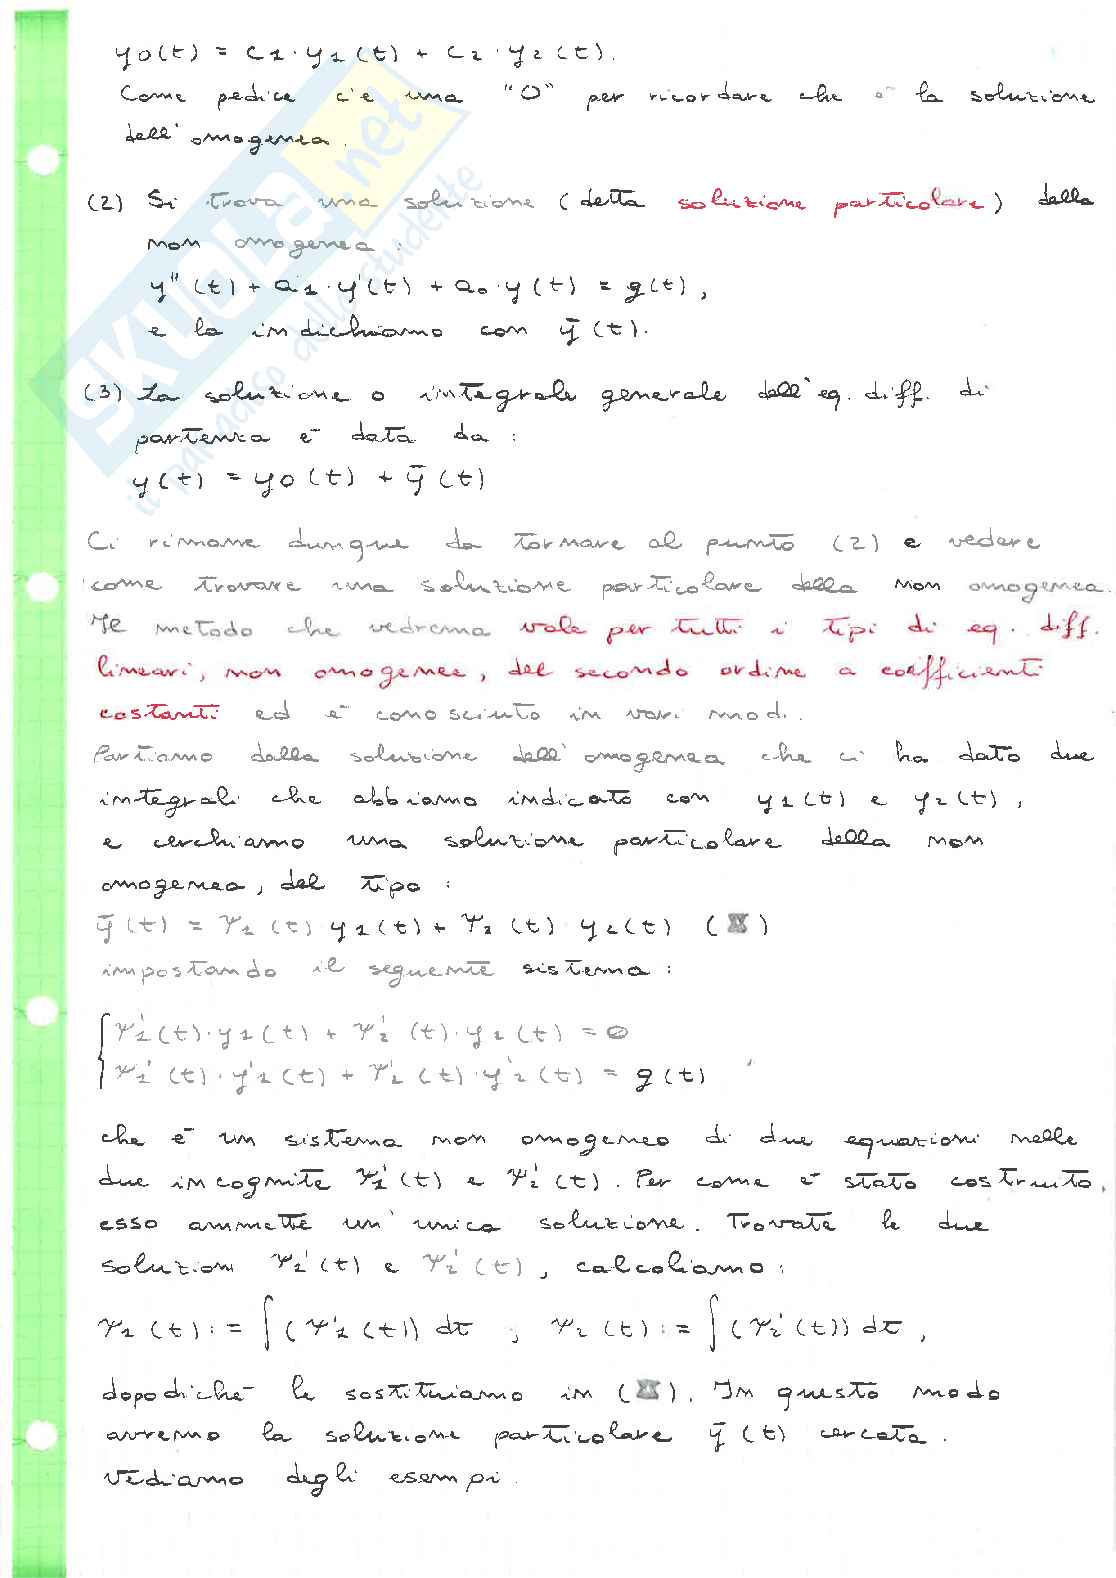 y0(t) = c1·y1(t) + c2·y2(t).
Come pedice c'è una "0" per ricordare che è la soluzione
dell'omogenea.
(2) Si trova una soluzione (detta soluzione particolare) della
non omogenea:
y"(t) + a1·y'(t) + a0·y(t) = g(t),
e la indichiamo con ȳ(t).
(3) La soluzione o integrale generale dell'eq. diff. di
partenza è data da:
y(t) = y0(t) + ȳ(t)
Ci rimane dunque da tornare al punto (2) e vedere
come trovare una soluzione particolare della non omogenea.
Il metodo che vedremo vale per tutti i tipi di eq. diff.
lineari, non omogenee, del secondo ordine a coefficienti
costanti ed è conosciuto in vari modi.
Partiamo dalla soluzione dell'omogenea che ci ha dato due
integrali che abbiamo indicato con y1(t) e y2(t),
e cerchiamo una soluzione particolare della non
omogenea, del tipo:
ȳ(t) = Ψ1(t) y1(t) + Ψ2(t) y2(t) (※)
impostando il seguente sistema:
Ψ1'(t)·y1(t) + Ψ2'(t)·y2(t) = 0
Ψ1'(t)·y'1(t) + Ψ2'(t)·y'2(t) = g(t)
che è un sistema non omogeneo di due equazioni nelle
due incognite Ψ1'(t) e Ψ2'(t). Per come è stato costruito,
esso ammette un'unica soluzione. Trovate le due
soluzioni Ψ1'(t) e Ψ2'(t), calcoliamo:
Ψ1(t) := ∫(Ψ'1(t)) dt ; Ψ2(t) := ∫(Ψ2'(t)) dt,
dopodiché le sostituiamo in (※). In questo modo
avremo la soluzione particolare ȳ(t) cercata.
Vediamo degli esempi.
SKUOLA.net
il paradiso dello studente